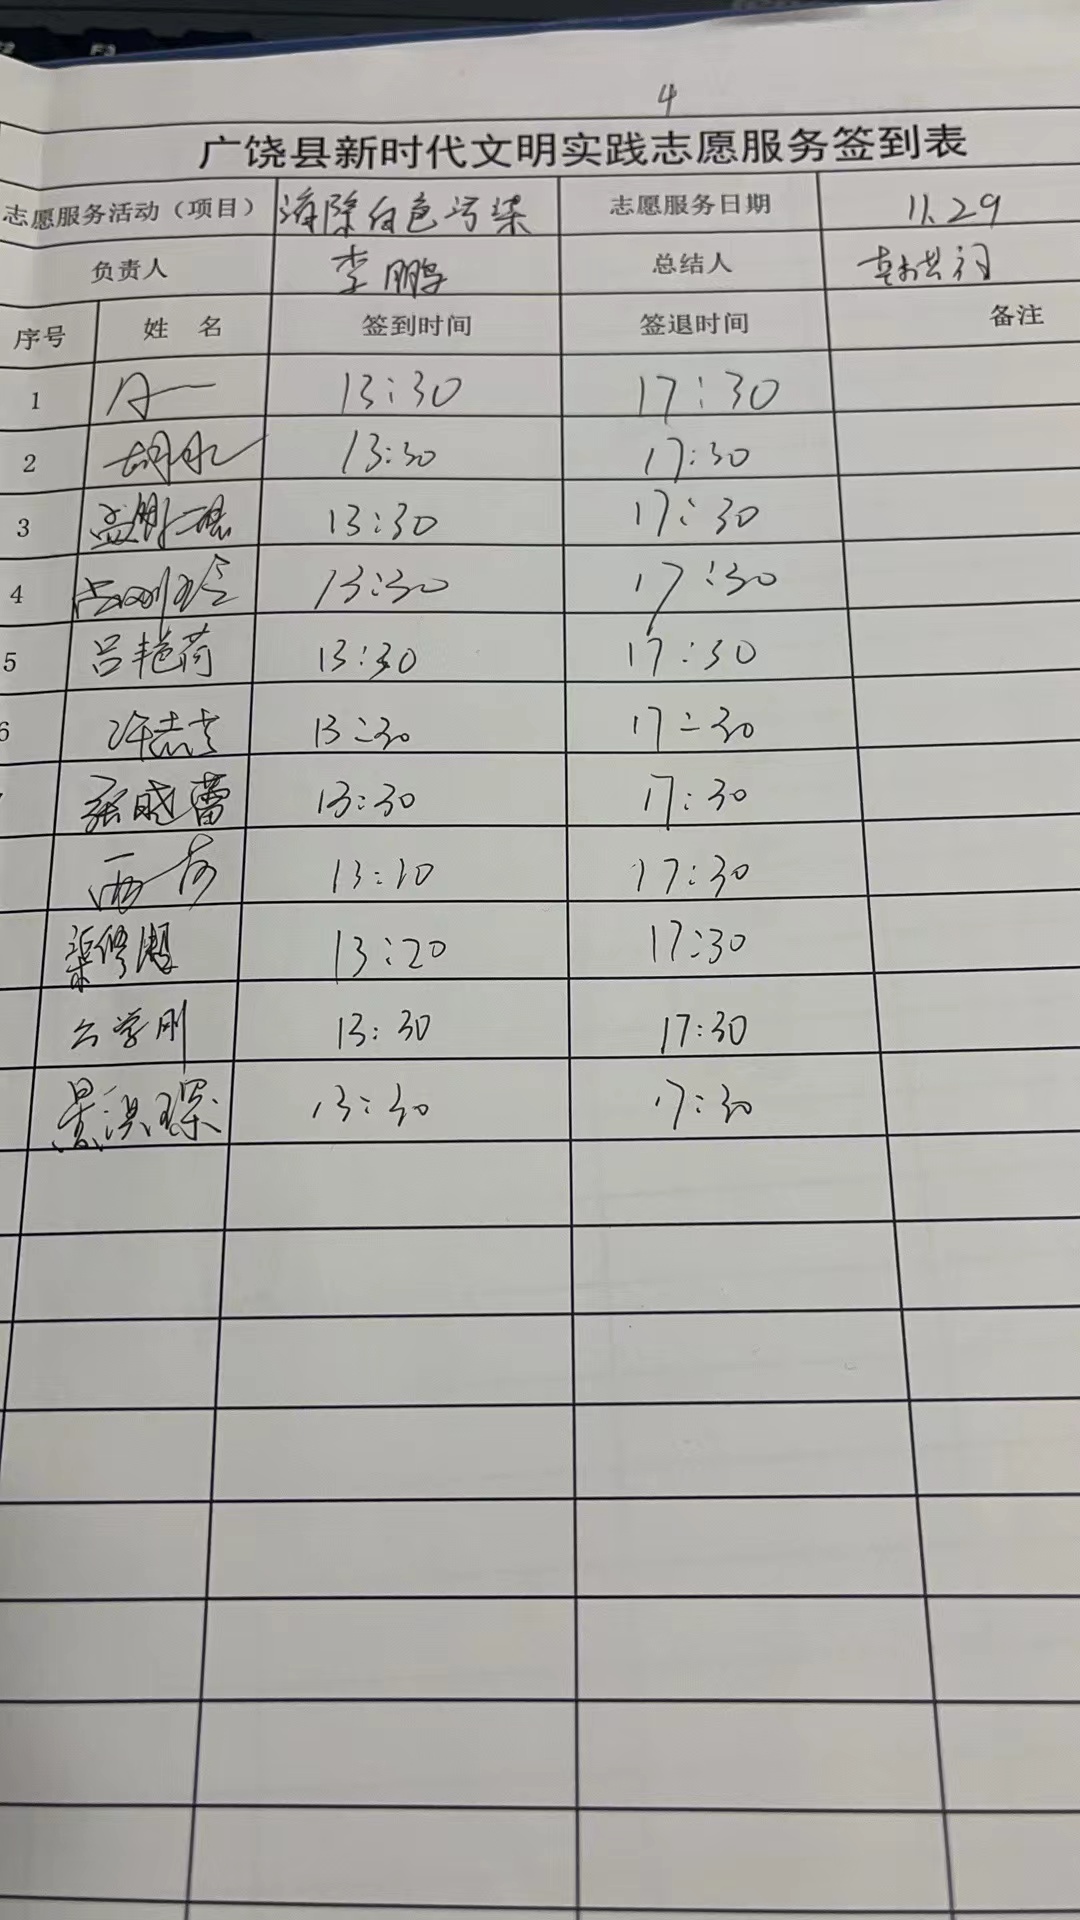 F3
4
广饶县新时代文明实践志愿服务签到表
志愿服务活动（项目） 清除白色污染 志愿服务日期 11.29
负责人 李鹏 总结人
序号 姓 名 签到时间 签退时间 备注
1 13:30 17:30
2 13:30 17:30
3 13:30 17:30
4 13:30 17:30
5 吕艳荷 13:30 17:30
6 许志 13:30 17:30
张晓蕾 13:30 17:30
13:10 17:30
13:20 17:30
公学刚 13:30 17:30
景洪琛 13:30 17:30